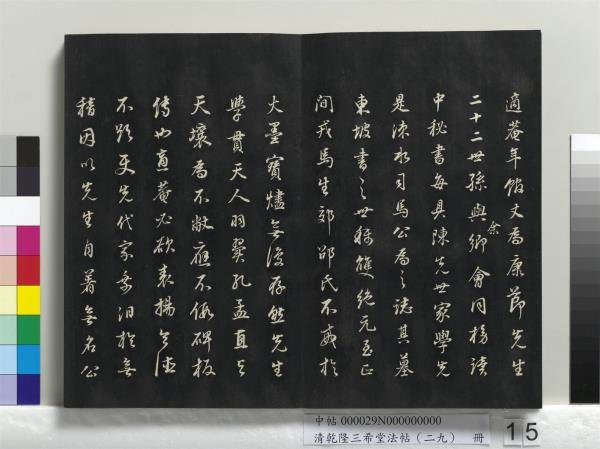 適菴年館丈為康節先生
二十二世孫與余鄉會同榜讀
中秘書每具陳先世家學先
是涑水司馬公為之誌其墓
東坡書之世稱雙絕元至正
間戎馬生郊邵氏不戒於
火墨寶燼無復存然先生
學貫天人羽翼孔孟直與
天壤為不敝應不假碑板
傳也菴必欲表揚令德
不使先代家乘汨於無
稽因以先生自著無名公
中帖 000029N000000000
清乾隆三希堂法帖(二九) 冊
15